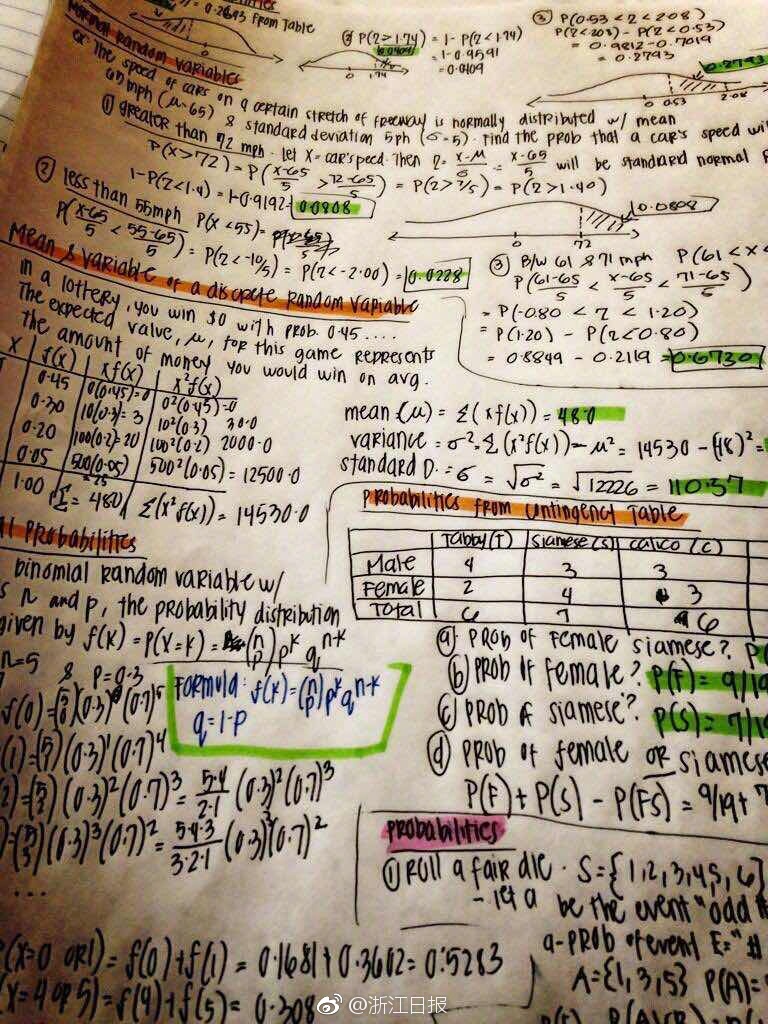 = 0.2643 From Table
② P(Z > 1.74) = 1 - P(Z < 1.74)
= 1 - 0.9591
= 0.0409
0.0409
0 1.74
③ P(0.53 < Z < 2.08)
P(Z < 2.03) - P(Z < 0.53)
= 0.9812 - 0.7019
= 0.2793
0.2793
0 0.53 2.08
Normal Random Variables
ex: The speed of cars on a certain stretch of freeway is normally distributed w/ mean
65 mph (μ=65) & standard deviation 5ph (σ=5). Find the prob that a car's speed wi
① greater than 72 mph. let X = car's peed. Then Z = X-μ/σ = X-65/5 will be standard normal
P(X > 72) = P(X-65/5 > 72-65/5) = P(Z > 7/5) = P(Z > 1.40)
1 - P(Z < 1.4) = 1 - 0.9192 = 0.0808
0.0808
0 72
② less than 55mph P(X < 55) =
P(X-65/5 < 55-65/5) = P(Z < -10/5) = P(Z < -2.00) = 0.0228
③ B/w 61 & 71 mph P(61 < X <
P(61-65/5 < X-65/5 < 71-65/5)
= P(-0.80 < Z < 1.20)
= P(1.20) - P(Z < 0.80)
= 0.8849 - 0.2119 = 0.6730
Mean & Variable of a discrete Random Variable
in a lottery, you win $0 with prob. 0.45 ....
The expected value, μ, for this game represents
the amount of money you would win on avg.
X f(X) Xf(X) X²f(X)
0.45 0(0.45)=0 0²(0.45)=0
0.30 10(0.3)=3 10²(0.3) 30.0
0.20 100(0.2)=20 100²(0.2) 2000.0
0.05 500(0.05) =25 500²(0.05) = 12500.0
1.00 Σ = 48.0 Σ(X²f(X)) = 14530.0
mean (μ) = Σ(xf(x)) = 48.0
variance = σ² = Σ(x²f(x)) - μ² = 14530 - (48)² =
standard D. = σ = √σ² = √12226 = 110.57
Probabilities from Contingency Table
Tabby (T) Siamese (S) calico (C)
Male 4 3 3
Female 2 4 3
Total 6 7 6
ⓐ PROB of Female siamese? P(
ⓑ PROB of female? P(F) = 9/19
ⓒ PROB of siamese? P(S) = 7/19
ⓓ PROB of female OR siamese
P(F) + P(S) - P(FS) = 9/19 + 7
l Probabilities
binomial random variable w/
s n and p, the probability distribution
given by f(k) = P(X=k) = (n p) p^k q^n-k
n=5 & p=0.3
Formula: f(k) = (n p) p^k q^n-k
q = 1-p
f(0) = (5 0)(0.3)^0 (0.7)^5
(1) = (5 1)(0.3)^1 (0.7)^4
2) = (5 2)(0.3)² (0.7)³ = 5·4/2·1 (0.3)² (0.7)³
) = (5 3)(0.3)³ (0.7)² = 5·4·3/3·2·1 (0.3)³ (0.7)²
....
(X=0 or 1) = f(0) + f(1) = 0.1681 + 0.3602 = 0.5283
(X=4 or 5) = f(4) + f(5) = 0.308
Probabilities
① Roll a fair die. S = {1,2,3,4,5,6}
- let a be the event "odd #
a - PROB of event E = "#
A = {1,3,5} P(A) =
@浙江日报